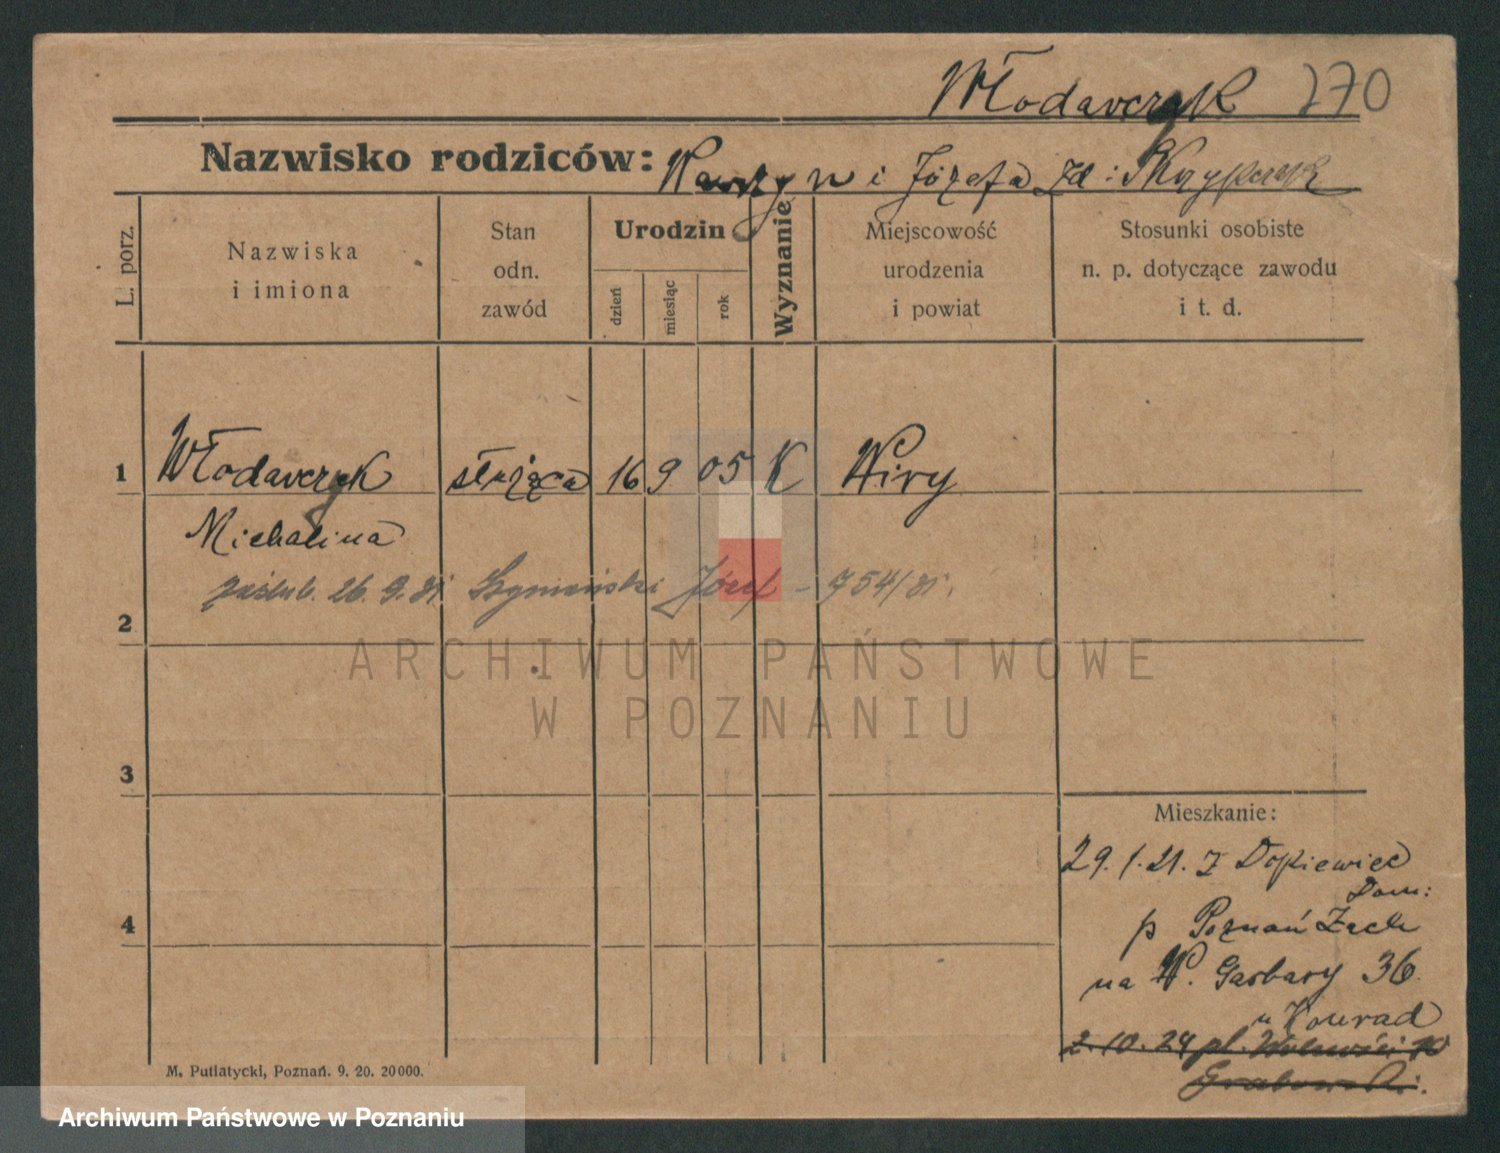 Włodarczyk 270
Nazwisko rodziców: Wawrzyn i Józefa zd: Skrzypczak
L. porz.
Nazwiska
i imiona
Stan
odn.
zawód
Urodzin
dzień
miesiąc
rok
Wyznanie
Miejscowość
urodzenia
i powiat
Stosunki osobiste
n. p. dotyczące zawodu
i t. d.
1 Włodarczyk służąca 16 9 05 K Wiry
Michalina
zaślub. 26.9.31. Szymański Józef - 754/31.
2
ARCHIWUM PAŃSTWOWE
W POZNANIU
3
Mieszkanie:
29.1.21. z Dopiewiec
Dom:
4
p Poznań Zach
na W. Garbary 36
u Konrad
2.10.24 pl. Wolności 10
Grabowski.
M. Putiatycki, Poznań. 9. 20. 20000.
Archiwum Państwowe w Poznaniu